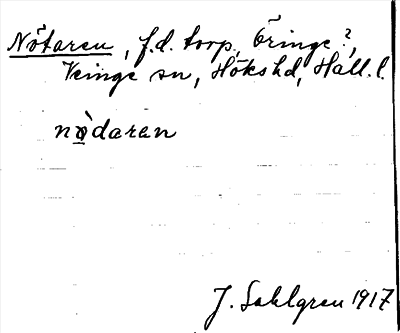 Nötaren, f.d. torp, Öringe?,
Veinge sn, Hökshd, Hall. l.
nǫ̀daren
J. Sahlgren 1917